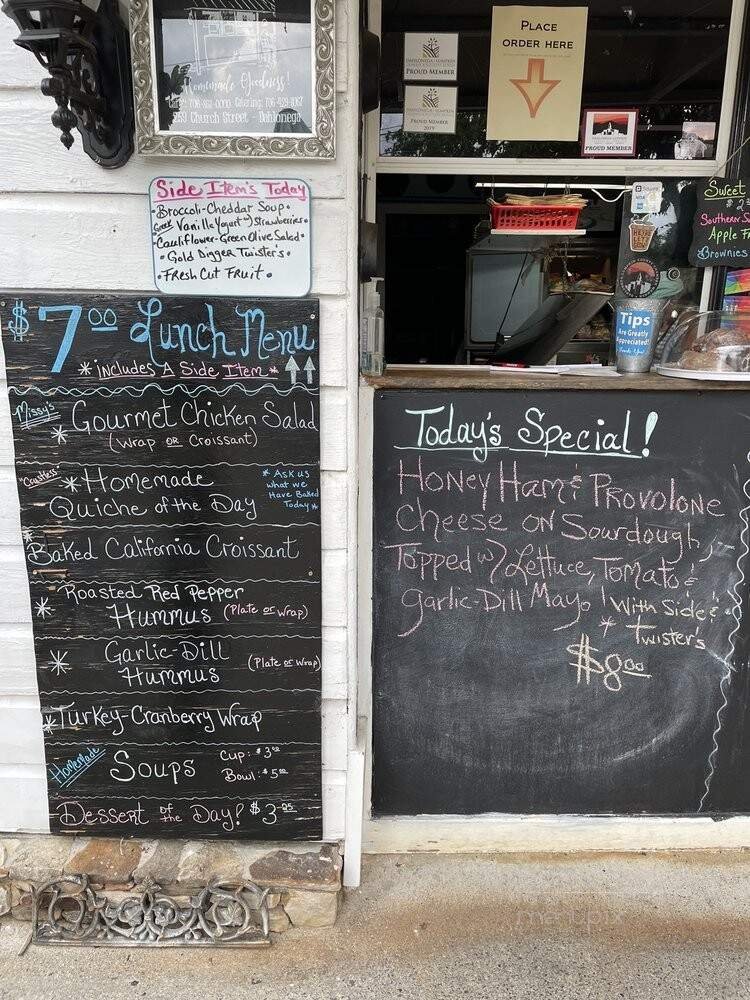 Homemade Goodness!
259 Church Street - Dahlonega
PROUD MEMBER
PROUD MEMBER
2019
PLACE
ORDER HERE
PROUD MEMBER
Side Item's Today
• Broccoli-Cheddar Soup •
• Greek Vanilla Yogurt w/ Strawberries •
• Cauliflower-Green Olive Salad •
• Gold Digger Twister's •
• Fresh Cut Fruit •
$7.00 Lunch Menu
* includes A Side Item *
Missy's
* Gourmet Chicken Salad
(Wrap or Croissant)
"Crustless" * Homemade
Quiche of the Day
* Ask us
what we
Have Baked
Today *
* Baked California Croissant
* Roasted Red Pepper
Hummus (Plate or Wrap)
* Garlic-Dill
Hummus (Plate or Wrap)
* Turkey-Cranberry Wrap
Homemade Soups
Cup: $3
Bowl: $5
Dessert of the Day! $3
Square
Tips
Are Greatly
Appreciated!
Thank You!
Sweet
Southern S
Apple F
Brownies
Today's Special!
Honey Ham & Provolone
Cheese on Sourdough
Topped w/ Lettuce, Tomato &
Garlic-Dill Mayo! With Side &
* Twister's
$8.00